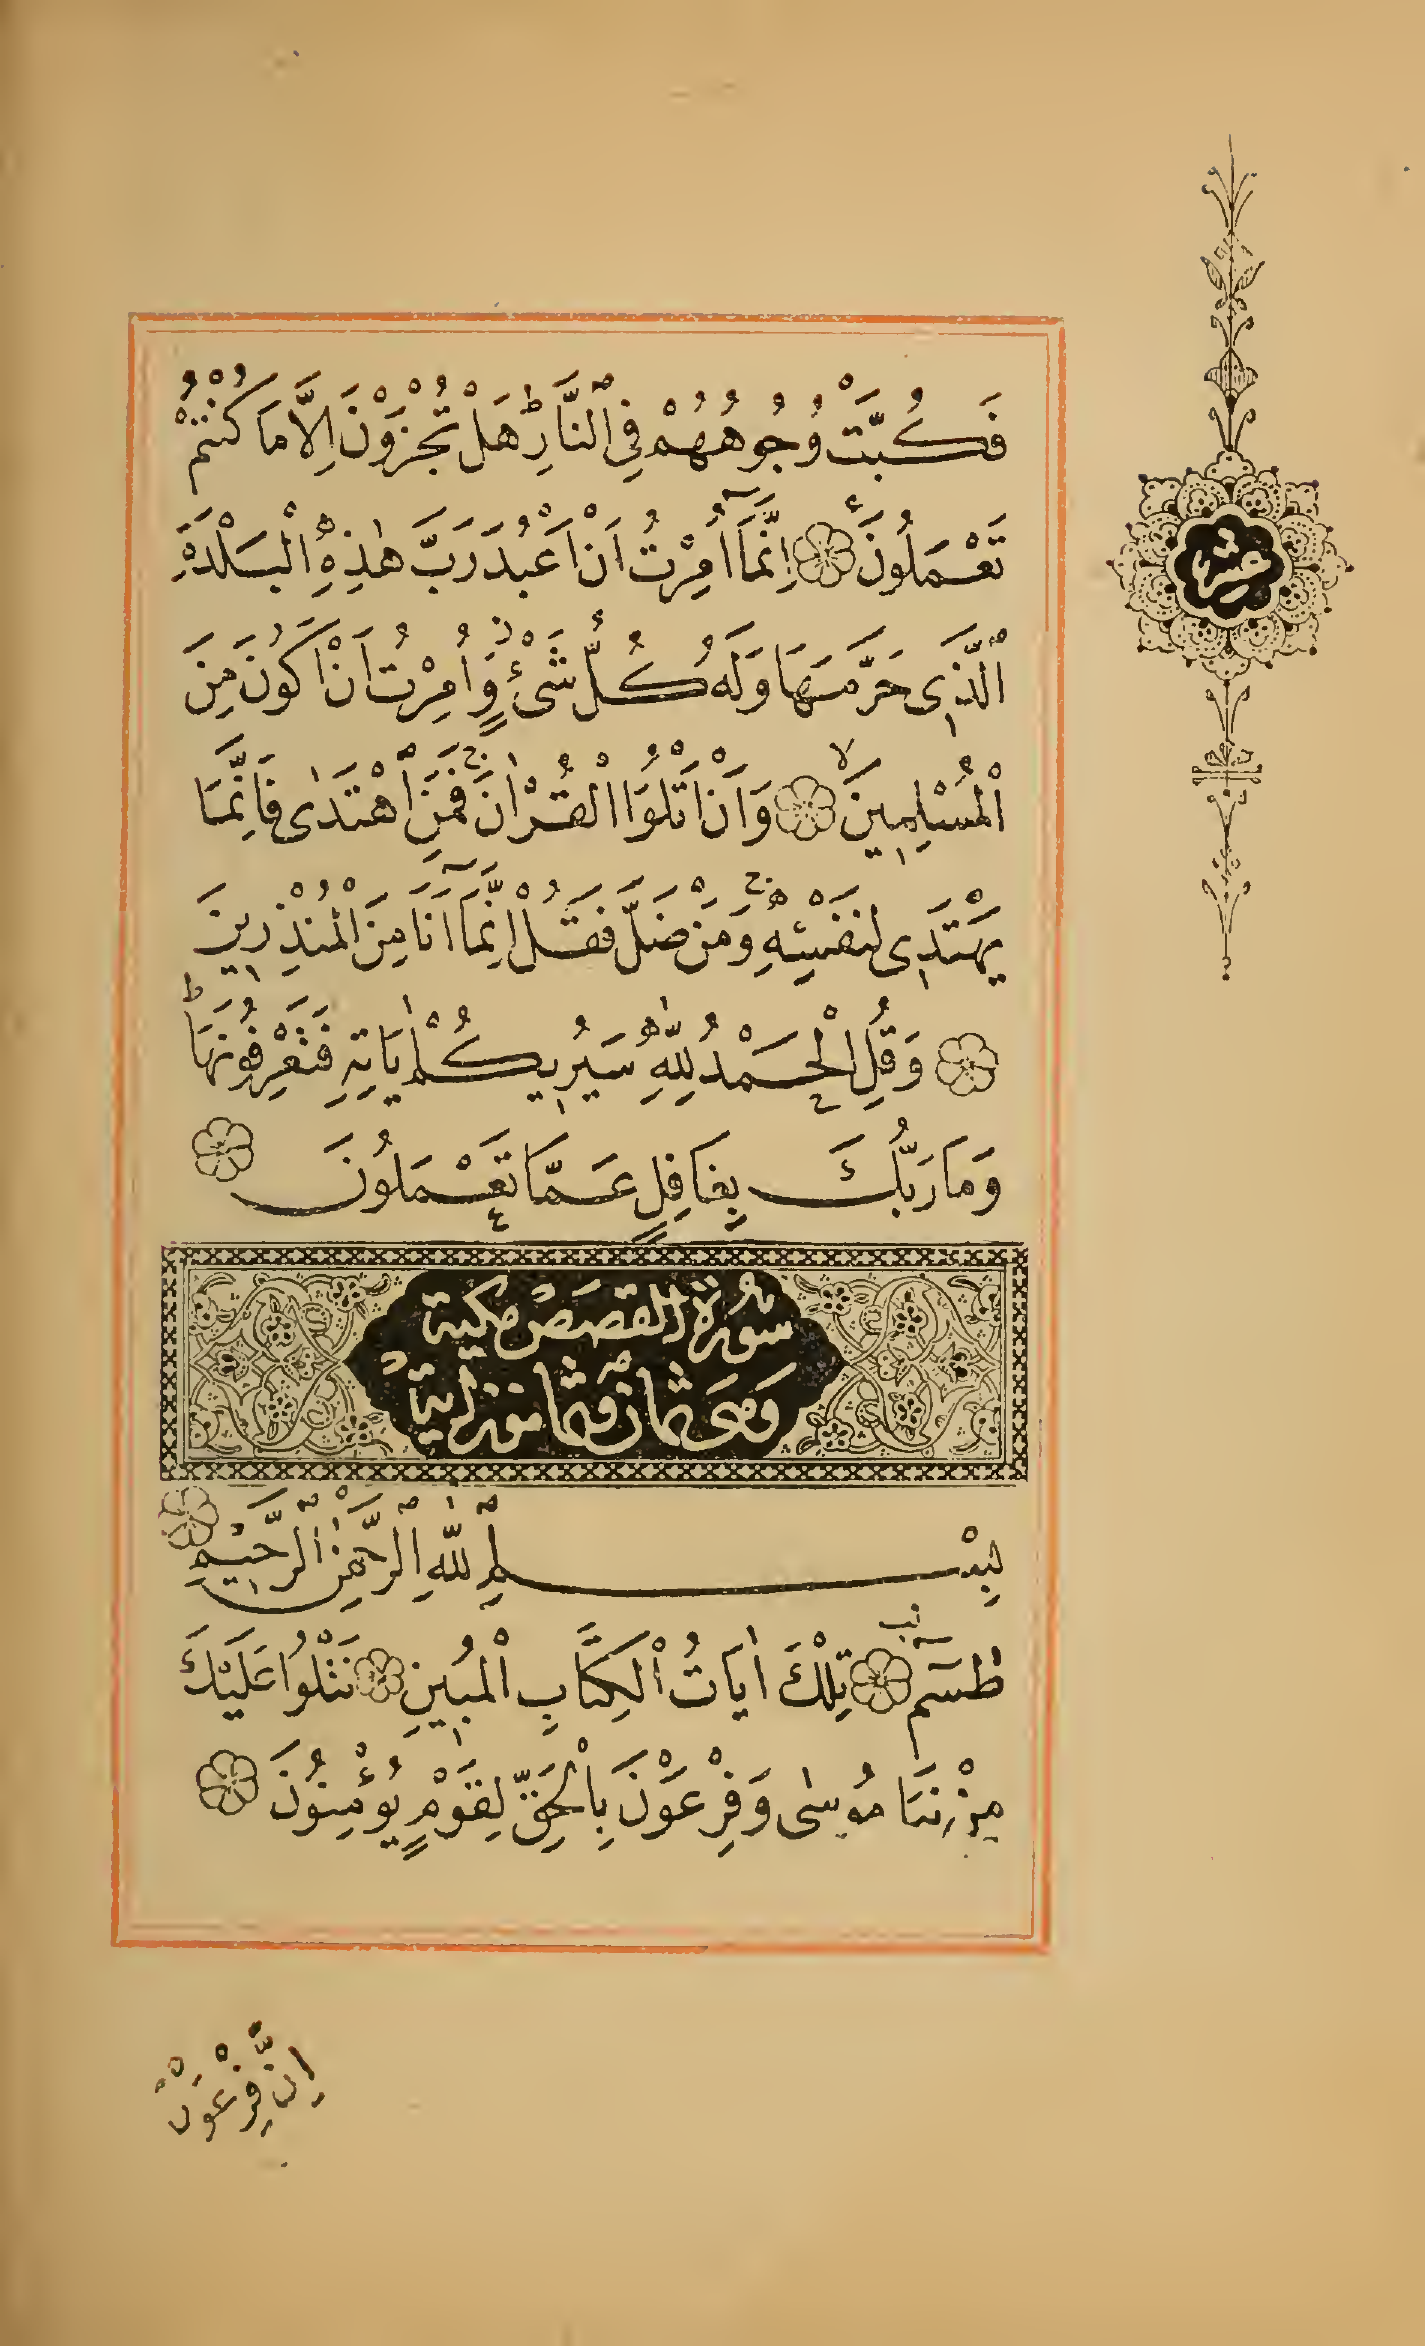 فَكُبَّتْ وُجُوهُهُمْ فِي ٱلنَّارِ ط هَلْ تُجْزَوْنَ اِلَّا مَا كُنْتُمْ
تَعْمَلُونَ اِنَّمَٓا اُمِرْتُ اَنْ اَعْبُدَ رَبَّ هٰذِهِ الْبَلْدَةِ
ٱلَّذِي حَرَّمَهَا وَلَهُ كُلُّ شَىْءٍ ز وَاُمِرْتُ اَنْ اَكُونَ مِنَ
الْمُسْلِمِينَ لا وَاَنْ اَتْلُوَا الْقُرْاٰنَ ج فَمَنِ ٱهْتَدٰى فَاِنَّمَا
يَهْتَدِي لِنَفْسِهِ ج وَمَنْ ضَلَّ فَقُلْ اِنَّمَٓا اَنَا مِنَ الْمُنْذِرِينَ
وَقُلِ الْحَمْدُ لِلّٰهِ سَيُرِيكُمْ اٰيَاتِهِ فَتَعْرِفُونَهَا ط
وَمَا رَبُّكَ بِغَافِلٍ عَمَّا تَعْمَلُونَ
عشر
سُورَةُ الْقَصَصْ مكية
وَهِيَ ثمان وثمانون اية
بِسْمِ ٱللّٰهِ ٱلرَّحْمٰنِ ٱلرَّحِيمِ
طٰسٓمٓ تِلْكَ اٰيَاتُ ٱلْكِتَابِ الْمُبِينِ نَتْلُوا عَلَيْكَ
مِنْ نَبَا مُوسٰى وَفِرْعَوْنَ بِالْحَقِّ لِقَوْمٍ يُؤْمِنُونَ
اِنَّ فِرْعَوْنَ